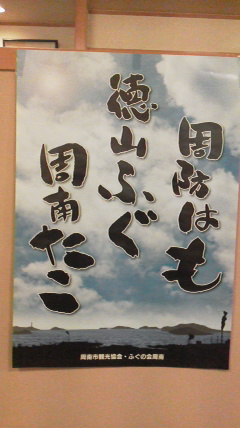 周防はも
徳山ふぐ
周南たこ
周南市観光協会・ふぐの会周南